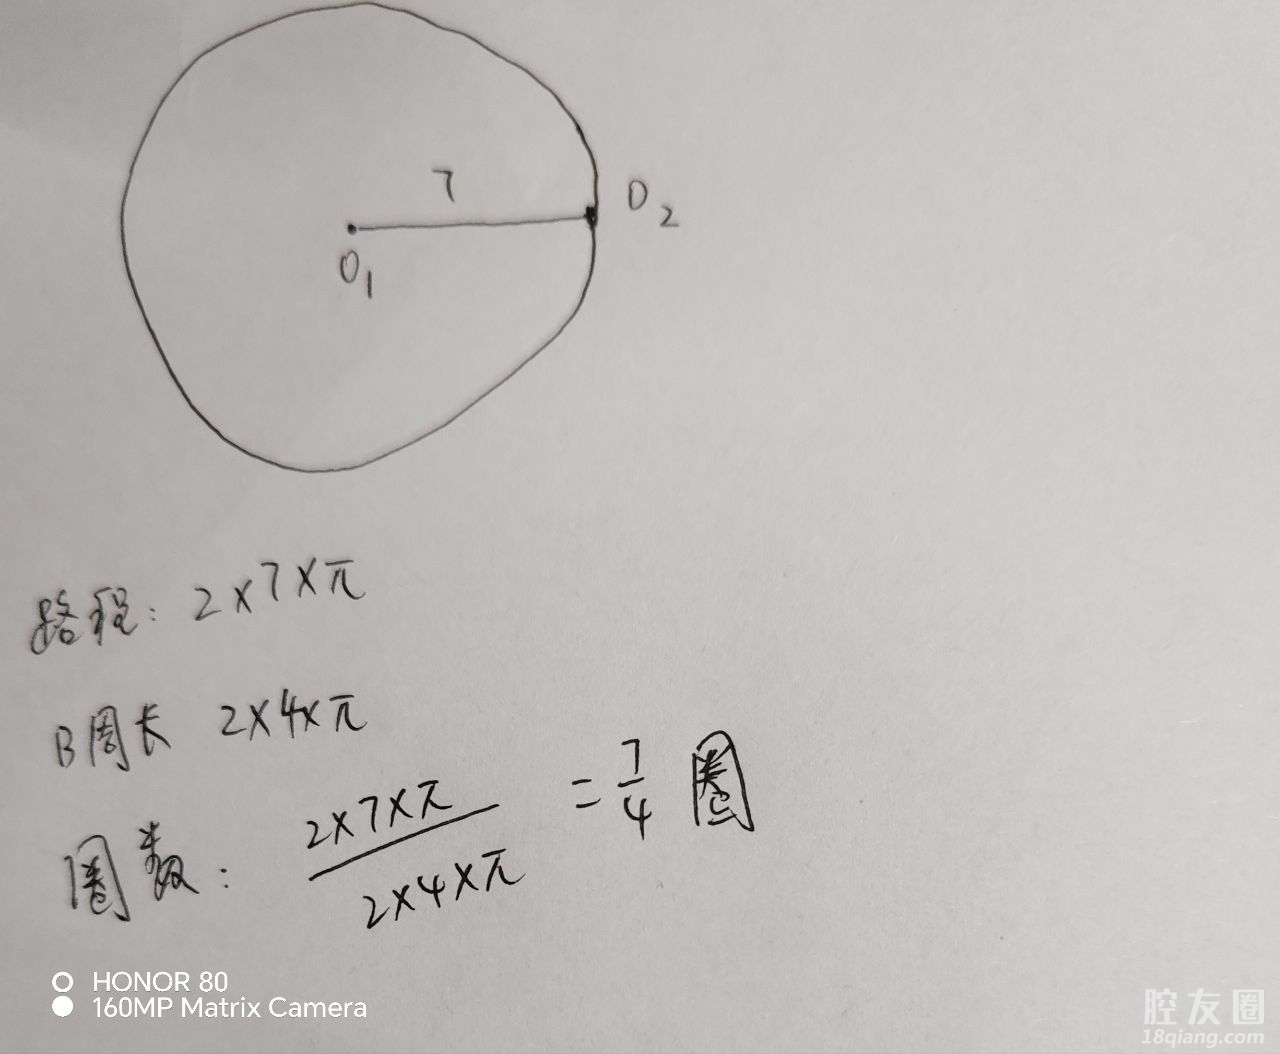 7
O₂
O₁
路程: 2×7×π
B周长 2×4×π
圈数: 2×7×π / 2×4×π = 7/4 圈
HONOR 80
160MP Matrix Camera
腔友圈
18qiang.com